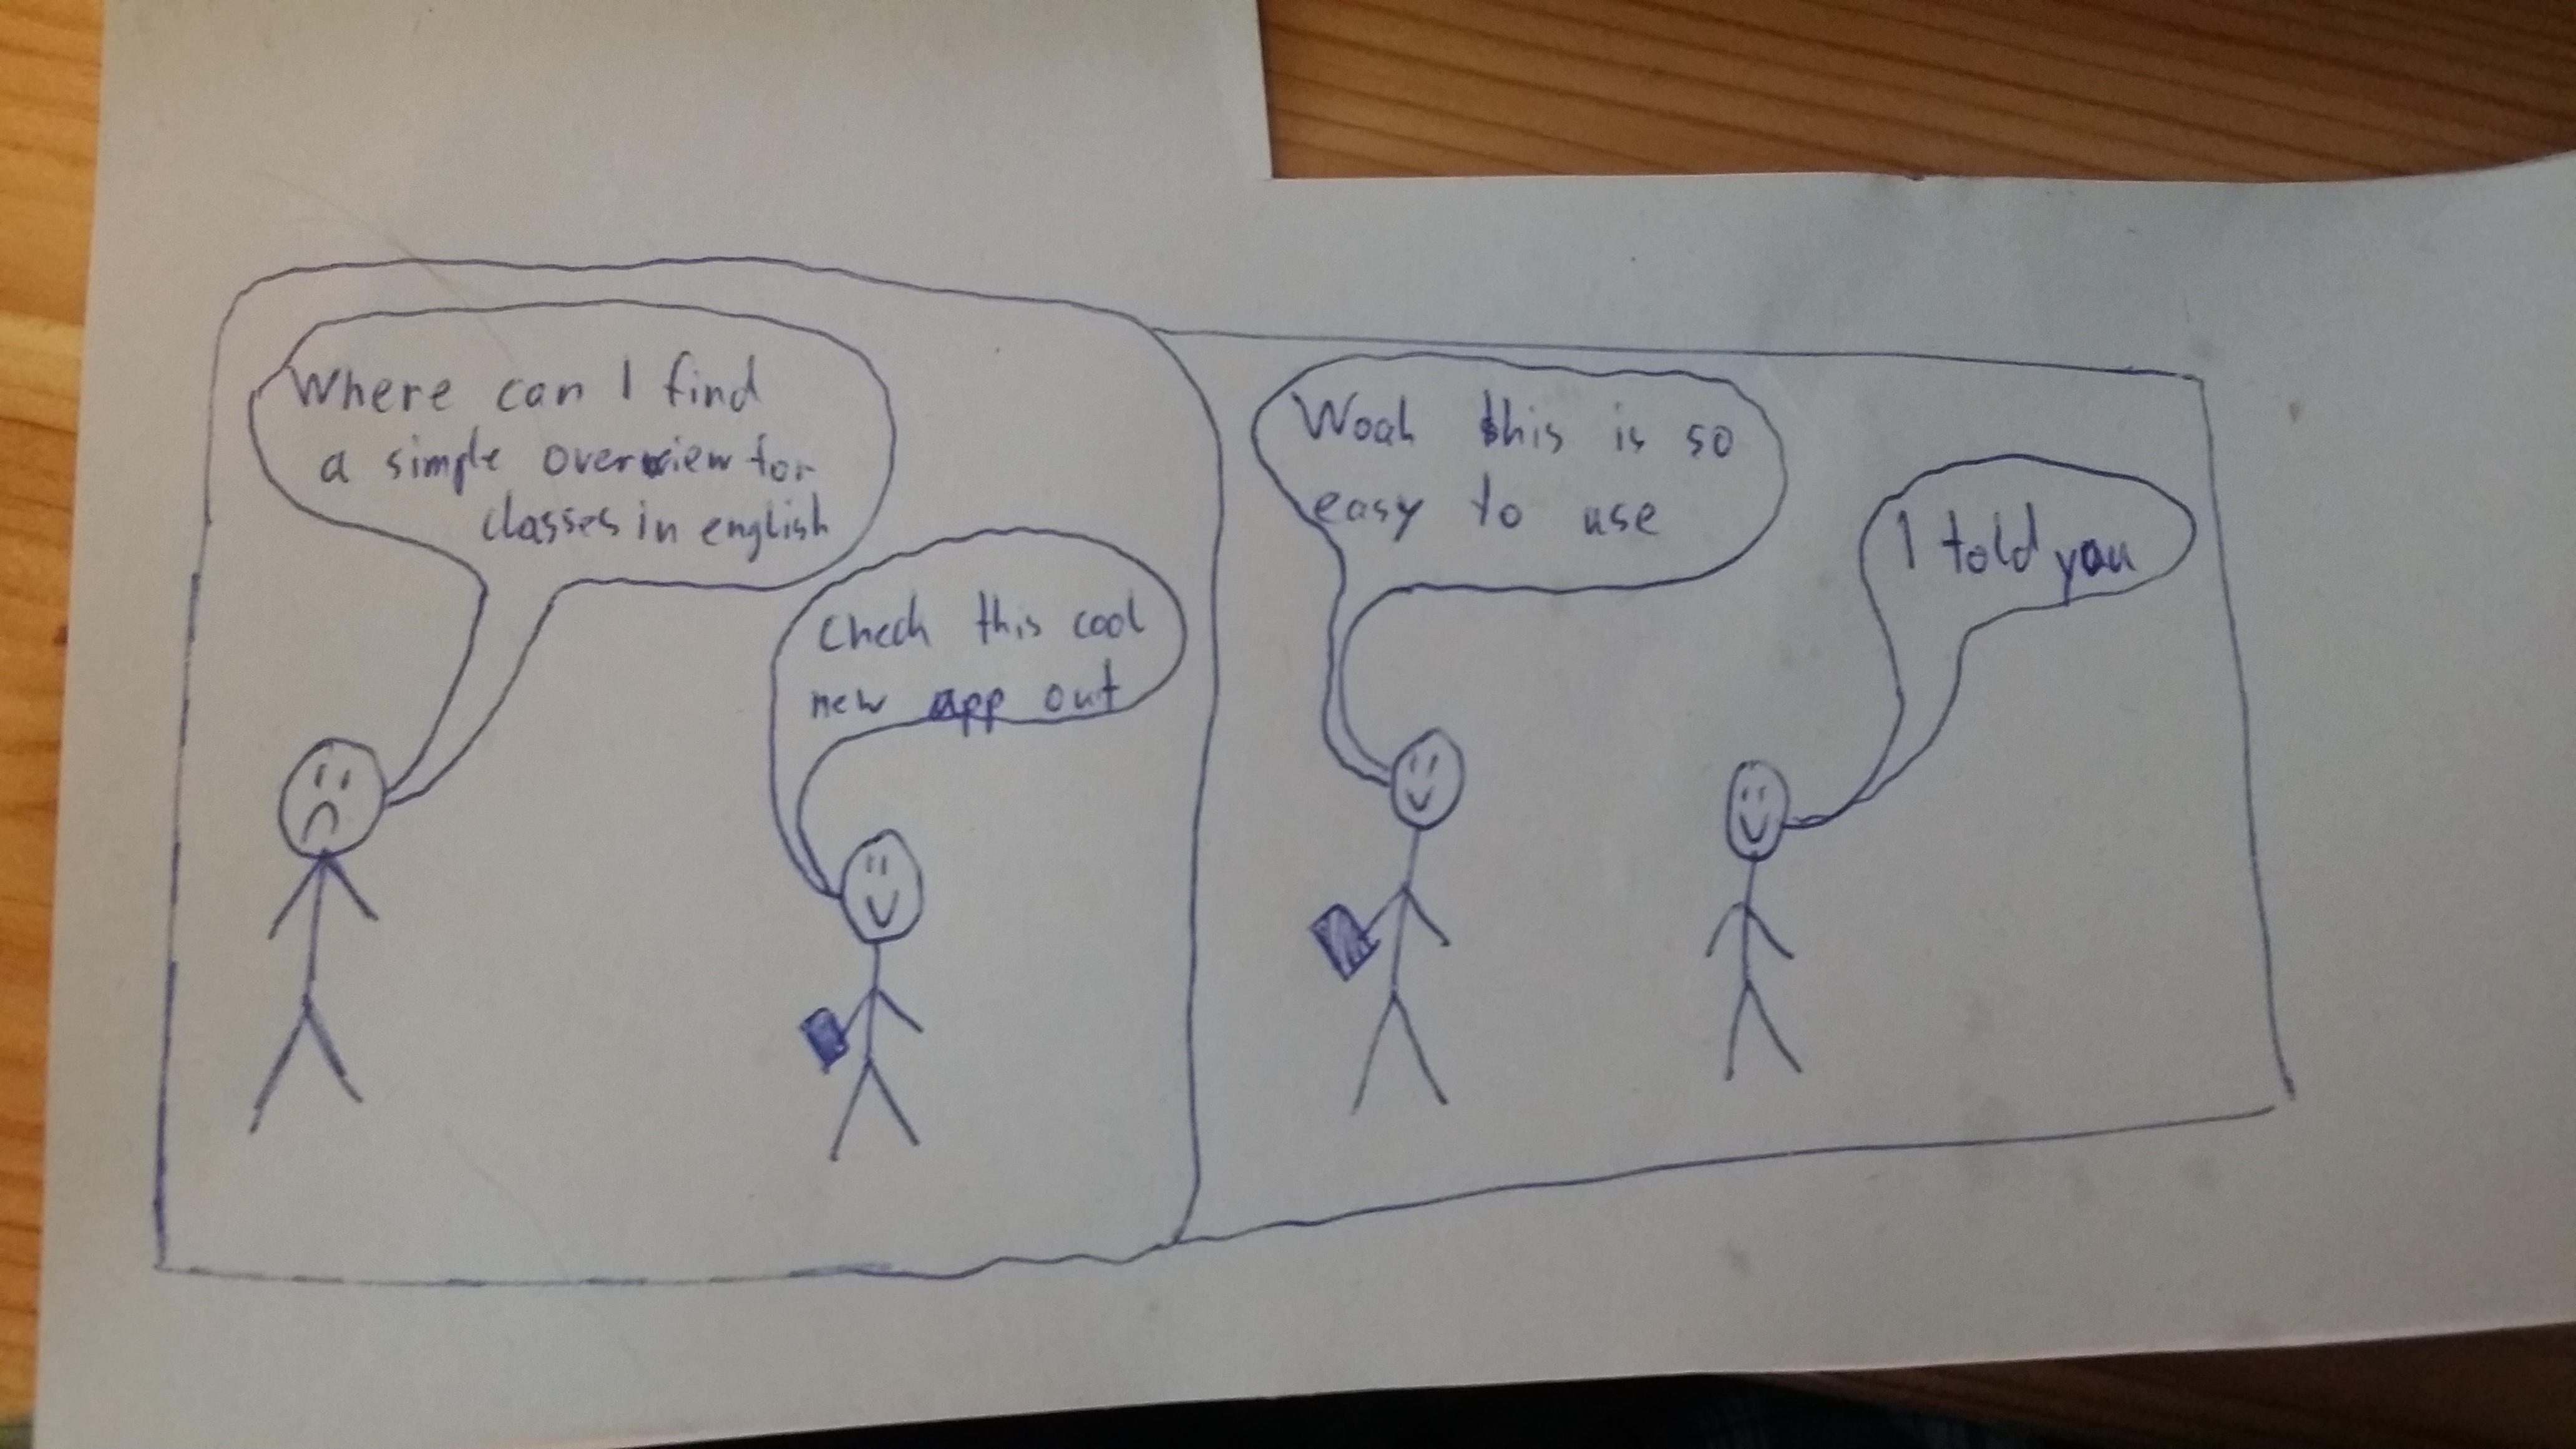 Where can I find
a simple overview for
classes in english
Check this cool
new app out
Woah this is so
easy to use
I told you